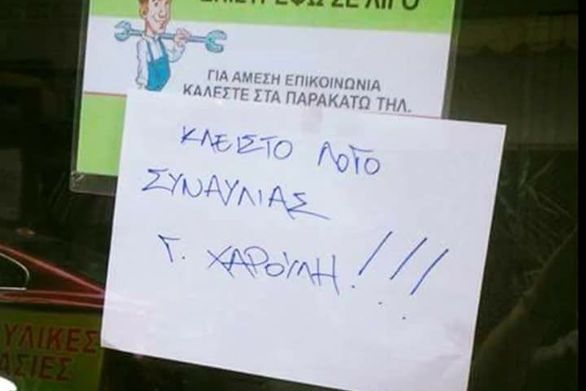 ΕΠΙΣΤΡΕΦΩ ΣΕ ΛΙΓΟ
ΓΙΑ ΑΜΕΣΗ ΕΠΙΚΟΙΝΩΝΙΑ
ΚΑΛΕΣΤΕ ΣΤΑ ΠΑΡΑΚΑΤΩ ΤΗΛ.
ΚΛΕΙΣΤΟ ΛΟΓΟ
ΣΥΝΑΥΛΙΑΣ
Γ. ΧΑΡΟΥΛΗ!!!
ΥΛΙΚΕΣ
ΑΣΙΕΣ